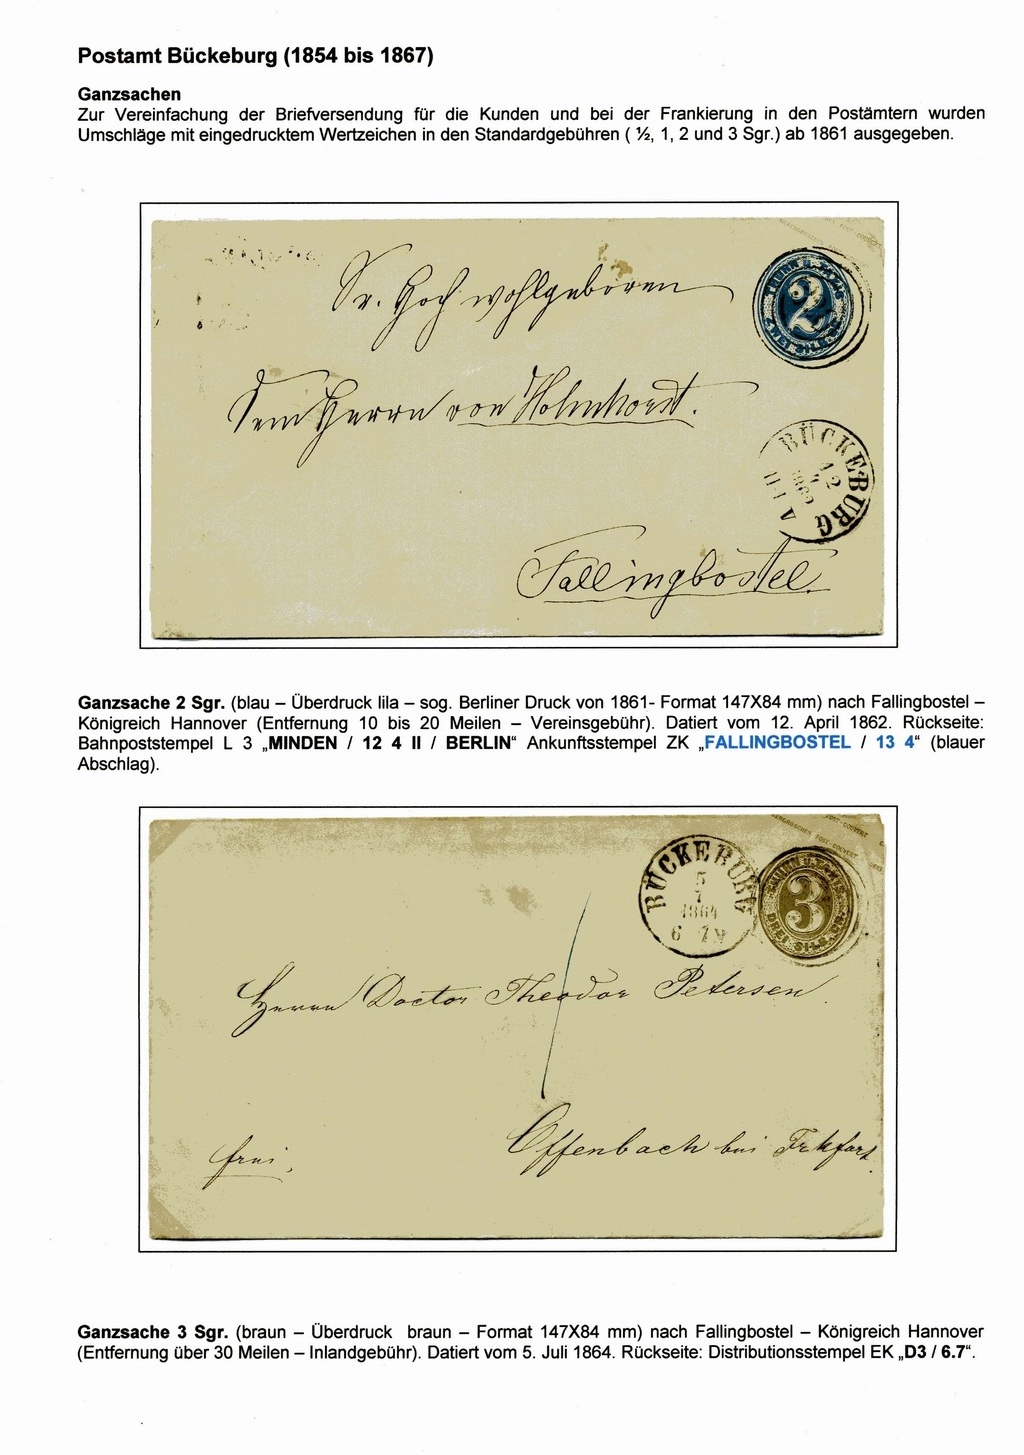 Postamt Bückeburg (1854 bis 1867)
Ganzsachen
Zur Vereinfachung der Briefversendung für die Kunden und bei der Frankierung in den Postämtern wurden
Umschläge mit eingedrucktem Wertzeichen in den Standardgebühren ( ½, 1, 2 und 3 Sgr.) ab 1861 ausgegeben.
2
Sr. Hochwohlgeboren
Dem Herrn von
BÜCKEBURG
12
A
Fallingbostel
Ganzsache 2 Sgr. (blau – Überdruck lila – sog. Berliner Druck von 1861- Format 147X84 mm) nach Fallingbostel –
Königreich Hannover (Entfernung 10 bis 20 Meilen – Vereinsgebühr). Datiert vom 12. April 1862. Rückseite:
Bahnpoststempel L 3 „MINDEN / 12 4 II / BERLIN“ Ankunftsstempel ZK „FALLINGBOSTEL / 13 4“ (blauer
Abschlag).
POST-COUVERT
BÜCKEBURG
5
7
1864
3
DREI SILB. GR.
Herrn Doctor Theodor Petersen.
Offenbach bei Frkfart.
frei.
Ganzsache 3 Sgr. (braun – Überdruck braun – Format 147X84 mm) nach Fallingbostel – Königreich Hannover
(Entfernung über 30 Meilen – Inlandgebühr). Datiert vom 5. Juli 1864. Rückseite: Distributionsstempel EK „D3 / 6.7“.